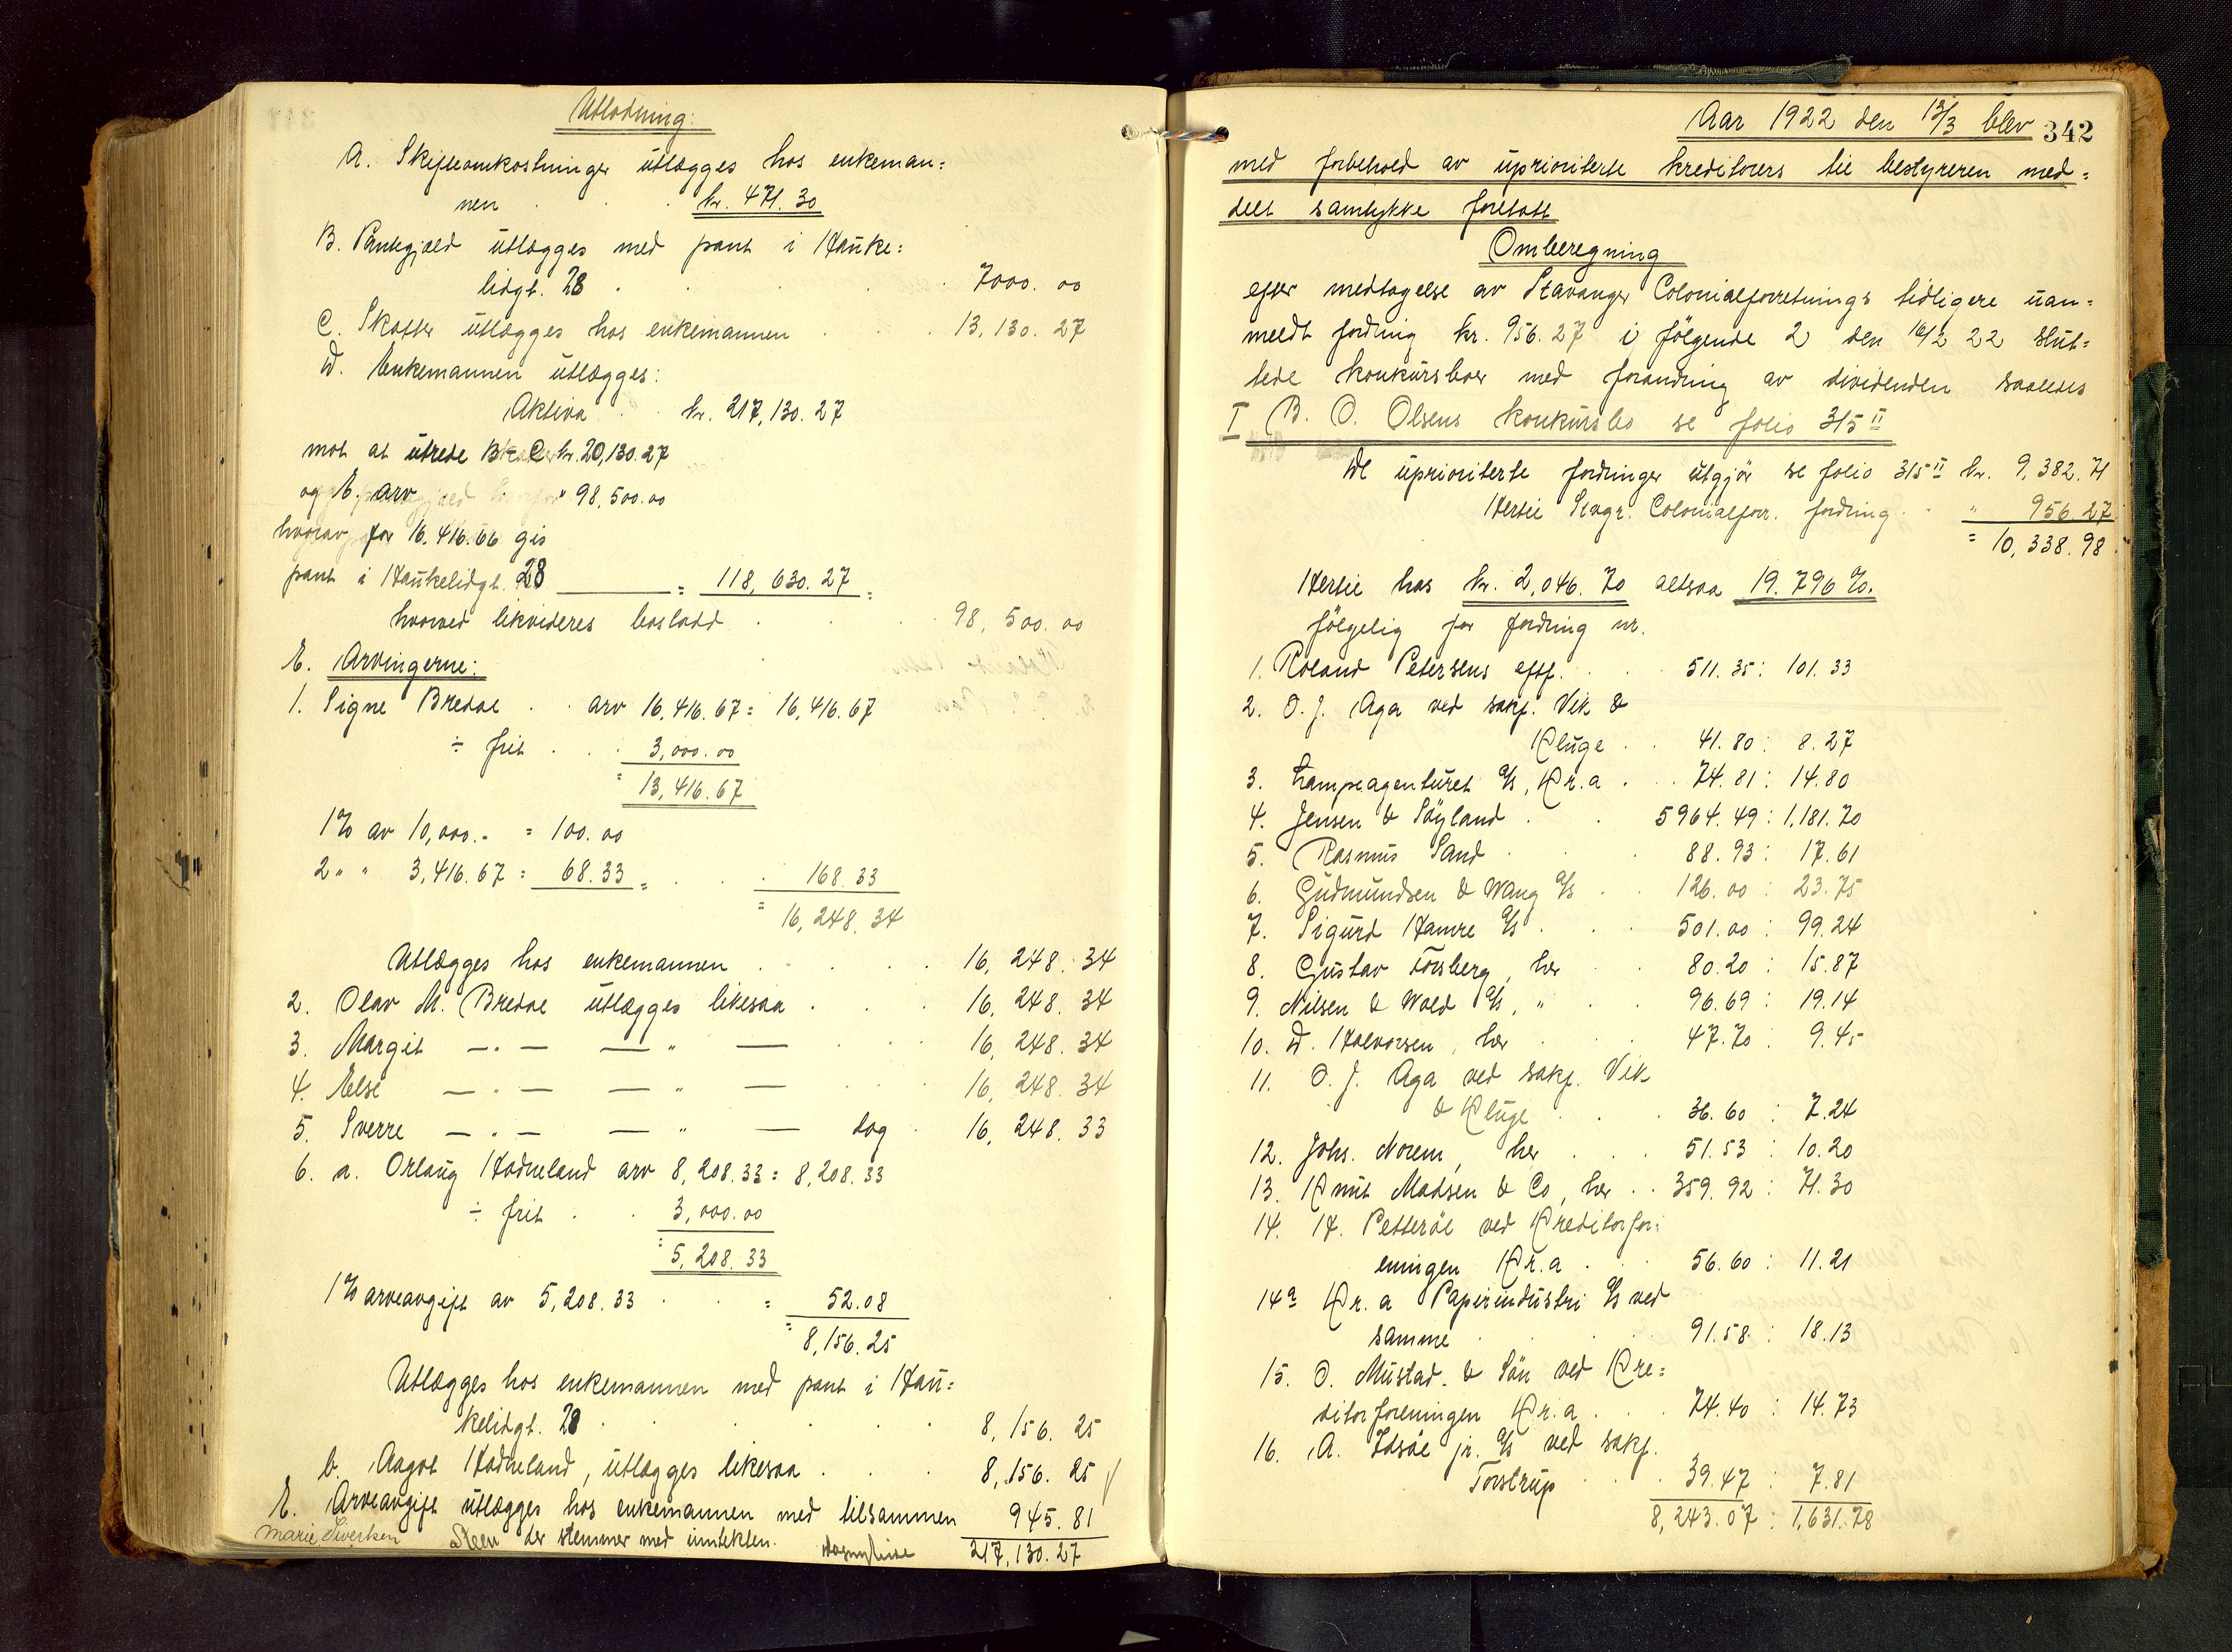 Utlodning:
A. Skifteomkostninger utlægges hos enkeman=
nen . . . kr. 471.30
B. Pantegjæld utlægges med pant i Hauke=
lidgt. 28 . . . . 7000.00
C. Skatter utlægges hos enkemannen . . . 13,130.27
D. Enkemannen utlægges:
Aktiva . . kr. 217,130.27
mot at utrede B + C kr. 20,130.27
og E. arv " 98,500.00
hvorav for 16,416.66 gis
pant i Haukelidgt. 28 = 118,630.27 =
hvorved likvideres boslodd . . . 98,500.00
E. Arvingerne:
1. Signe Bredal . . arv 16,416.67 = 16,416.67
÷ frit . . . 3,000.00
= 13,416.67
1% av 10,000.- = 100.00
2 " " 3,416.67 = 68.33 = . . . 168.33
= 16,248.34
Utlægges hos enkemannen . . . . 16,248.34
2. Olav M. Bredal utlægges likesaa . . . 16,248.34
3. Margit — " — — " — . . . 16,248.34
4. Else — " — — " — . . . 16,248.34
5. Sverre — " — — " — dog . 16,248.33
6. a. Orlaug Hadneland arv 8,208.33 = 8,208.33
÷ frit . . 3,000.00
= 5,208.33
1% arveavgift av 5,208.33 . . = 52.08
= 8,156.25
Utlægges hos enkemannen med pant i Hau=
kelidgt. 28 . . . . 8,156.25
b. Aagot Hadneland, utlægges likesaa . . . 8,156.25
E. Arveavgift utlægges hos enkemannen med tilsammen 945.81
Marie Sivertsen Steen der stemmer med inntekten. 217,130.27
Aar 1922 den 13/3 blev 342
med forbehold av uprioriterte kreditorers til bestyreren med=
delt samtykke foretatt
Omberegning
efter medtagelse av Stavanger Colonialforretnings tidligere uan=
meldt fordring kr. 956.27 i følgende 2 den 16/2 22 slut=
tede konkursboer med forandring av dividenden saaledes
I B. O. Olsens konkursbo se folio 315 II
De uprioriterte fordringer utgjør se folio 315 II kr. 9,382.71
Hertil Stvgr. Colonialforr. fordring . . " 956.27
= 10,338.98
Hertil has kr. 2,046.70 altsaa 19.796 %.
følgelig for fordring nr.
1. Roland Petersens eftf. . . . 511.35 : 101.33
2. O. J. Aga ved sakf. Vik &
Kluge . . 41.80 : 8.27
3. Lampeagenturet A/S, Kr.a . . . 74.81 : 14.80
4. Jensen & Søyland . . 5964.49 : 1,181.70
5. Rasmus Sand . . . 88.93 : 17.61
6. Gudmundsen & Wang A/S . . 126.00 : 23.75
7. Sigurd Hamre A/S . . . 501.00 : 99.24
8. Gustav Forsberg, her . . 80.20 : 15.87
9. Nilsen & Wold A/S, " . . 96.69 : 19.14
10. D. Halvorsen, her . . . 47.70 : 9.45
11. O. J. Aga ved sakf. Vik
& Kluge . . . 36.60 : 7.24
12. Johs. Norem, her . . . 51.53 : 10.20
13. Knut Madsen & Co, her . . 359.92 : 71.30
14. H. Petterøe ved Kreditorfor=
eningen Kr.a . . 56.60 : 11.21
14a Kr.a Papirindustri A/S ved
samme . . . . 91.58 : 18.13
15. O. Mustad & Søn ved Kre=
ditorforeningen Kr.a . . . 74.40 : 14.73
16. A. Idsøe jr. A/S ved sakf.
Torstrup . . . 39.47 : 7.81
8,243.07 : 1,631.78